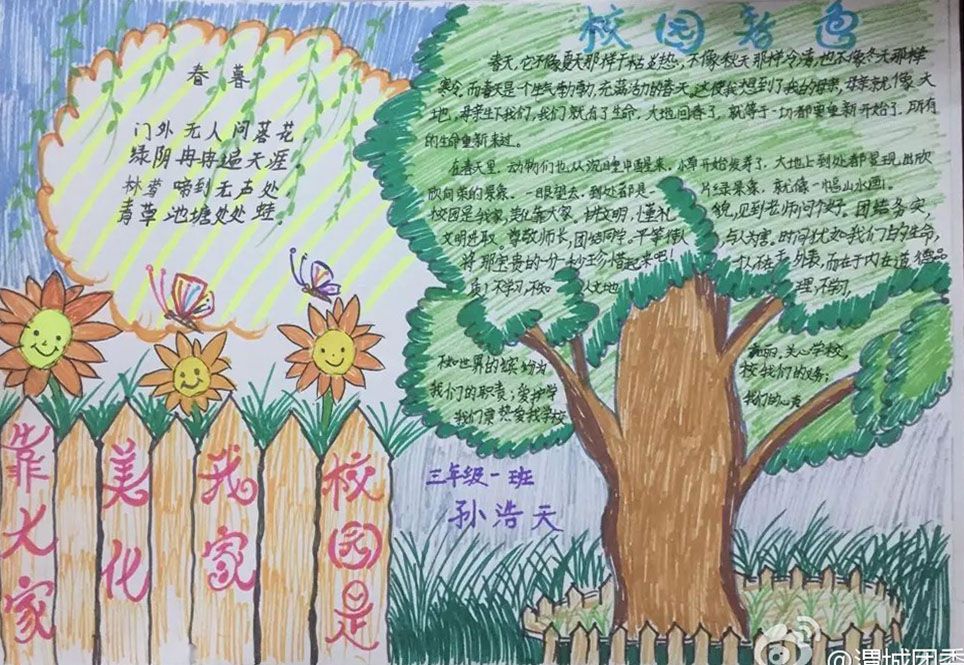 校园春色
春暮
门外无人问落花,
绿阴冉冉遍天涯,
林莺啼到无声处,
青草池塘处处蛙。
春天,它不像夏天那样干枯炎热,不像秋天那样冷清,也不像冬天那样
寒冷,而春天是个生气勃勃,充满活力的春天,这使我想到了我的母亲,母亲就像大
地,母亲生下我们,我们就有了生命,大地回春了,就等于一切都要重新开始了,所有
的生命重新来过。
在春天里,动物们也从沉睡中醒来,小草开始发芽了,大地上到处都呈现出欣
欣向荣的景象。一眼望去,到处都是一片绿景象,就像一幅山水画。
校园是我家,美化靠大家,讲文明,懂礼貌,见到老师问个好。团结务实,
文明进取。尊敬师长,团结同学。平等待人,与人为害。时间犹如我们上的生命,
将那宝贵的一分一秒珍惜起来吧!
人不在于外表,而在于内在道德品
不学习,不知
人文地
理,不学习,
不知世界的缤
我们的职责;爱护学
校我们的义务;
我们要热爱我学校
关心学校,
三年级一班
孙浩天
校园是
我家
美化
靠大家
@渭城团委